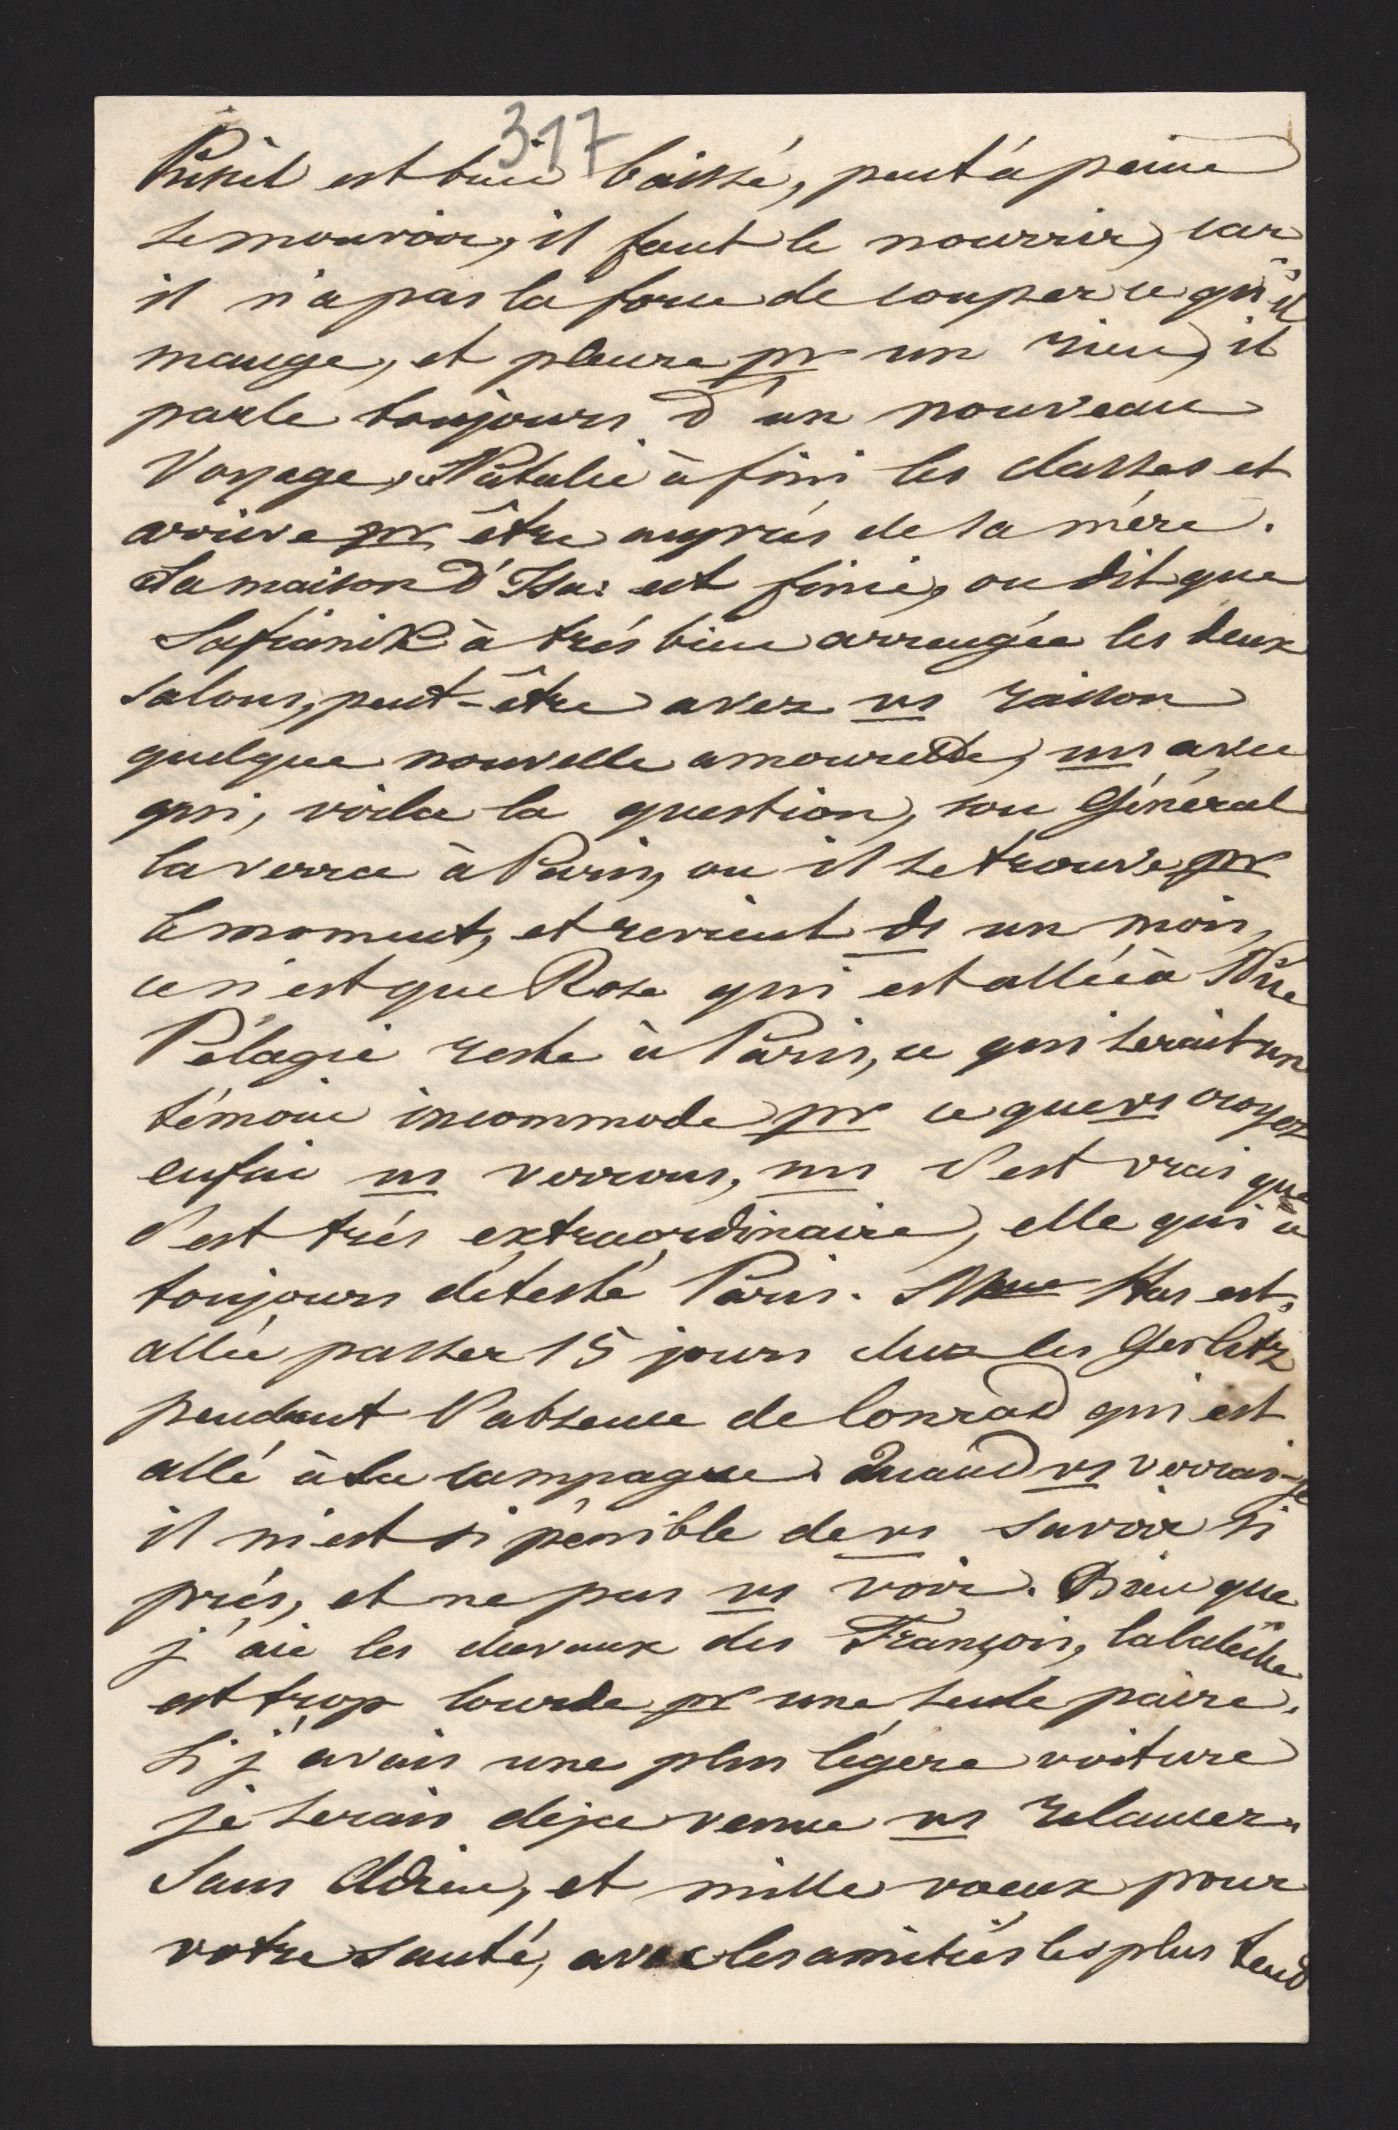 317
est bien baissé, peut à peine
se mouvoir, il faut le nourrir, car
il n'a pas la force de couper ce qu'il
mange, et pleure pr un rien, il
parle toujours d'un nouveau
Voyage, Natalie à fini les classes et
arrive pr être auprès de sa mère.
La maison d'Isa: est finie, on dit que
à très bien arrangée les deux
salons, peut-être avez vs raison
quelque nouvelle amourette, ms avec
qui, voila la question, son Général
la verra à Paris, ou il se trouve pr
le moment, et revient ds un mois,
ce n'est que Rose qui est allée à
Pélagie reste à Paris, ce qui serait un
témoin incommode pr ce que vs croyez
enfin ns verrons, ms c'est vrai que
c'est très extraordinaire, elle qui a
toujours détesté Paris. Mme est
allée passer 15 jours chez les Gerlitz
pendant l'absence de Conrad qui est
allé à la campagne. Quand vs verrai-je
il m'est si pénible de vs savoir si
près, et ne pas vs voir. Bien que
j'aie les chevaux des François, la calèche
est trop lourde pr une seule paire.
Si j'avais une plus légère voiture
je serais deja venue vs relancer.
Sans Adieu, et mille voeux pour
votre santé, avec les amitiés les plus tend